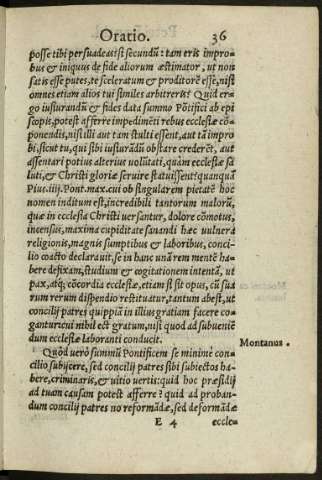 Oratio. 36
posse tibi persuadeas: si secundũ: tam eris impro-
bus & iniquus de fide aliorum æstimator, ut non
satis esse putes, te sceleratum & proditorẽ esse, nisi
omnes etiam alios tui similes arbitreris? Quid er-
go iusiurandũ & fides data summo Põtifici ab epi
scopis, potest afferre impedimẽti rebus ecclesiæ cõ-
ponendis, nisi illi aut tam stulti essent, aut tã impro
bi, sicut tu, qui sibi iusiurãdũ obstare crederẽt, aut
assentari potius alterius volũtati, quàm ecclesiæ sa
luti, & Christi gloriæ seruire statuissent? quanquã
Pius.iiij. Pont. max. cui ob singularem pietatẽ hoc
nomen inditum est, incredibili tantorum malorũ,
quæ in ecclesia Christi uersantur, dolore cõmotus,
incensus, maxima cupiditate sanandi hæc uulnera
religionis, magnis sumptibus & laboribus, conci-
lio coacto declarauit, se in hanc unã rem mentẽ ha-
bere defixam, studium & cogitationem intentã, ut
pax, atq; cõcordia ecclesiæ, etiam si sit opus, cũ sua
rum rerum dispendio restituatur, tantum abest, ut
concilij patres quippiã in illius gratiam facere co-
gantur: cui nihil est gratum, nisi quod ad subueniẽ
dum ecclesiæ laboranti conducit.
Quòd uerò summũ Pontificem se minimè con-
cilio subijcere, sed concilij patres sibi subiectos ha-
bere, criminaris, & uitio uertis: quid hoc præsidij
ad tuam causam potest afferre? quid ad proban-
dum concilij patres no reformãdæ, sed deformãdæ
Montanus.
E 4 eccle-